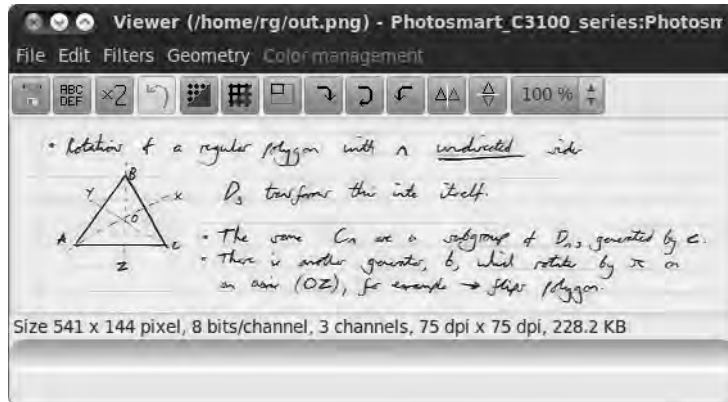 Viewer (/home/rg/out.png) - Photosmart_C3100_series:Photosm
File Edit Filters Geometry Color management
ABC DEF ×2 100 %
• Rotations of a regular polygon with n undirected sides
B
Y X D3 transforms this into itself.
O
A C • The same Cn are a subgroup of Dn, generated by c.
Z • There is another generator, b, which rotates by π on
an axis (OZ), for example → flips polygon.
Size 541 x 144 pixel, 8 bits/channel, 3 channels, 75 dpi x 75 dpi, 228.2 KB